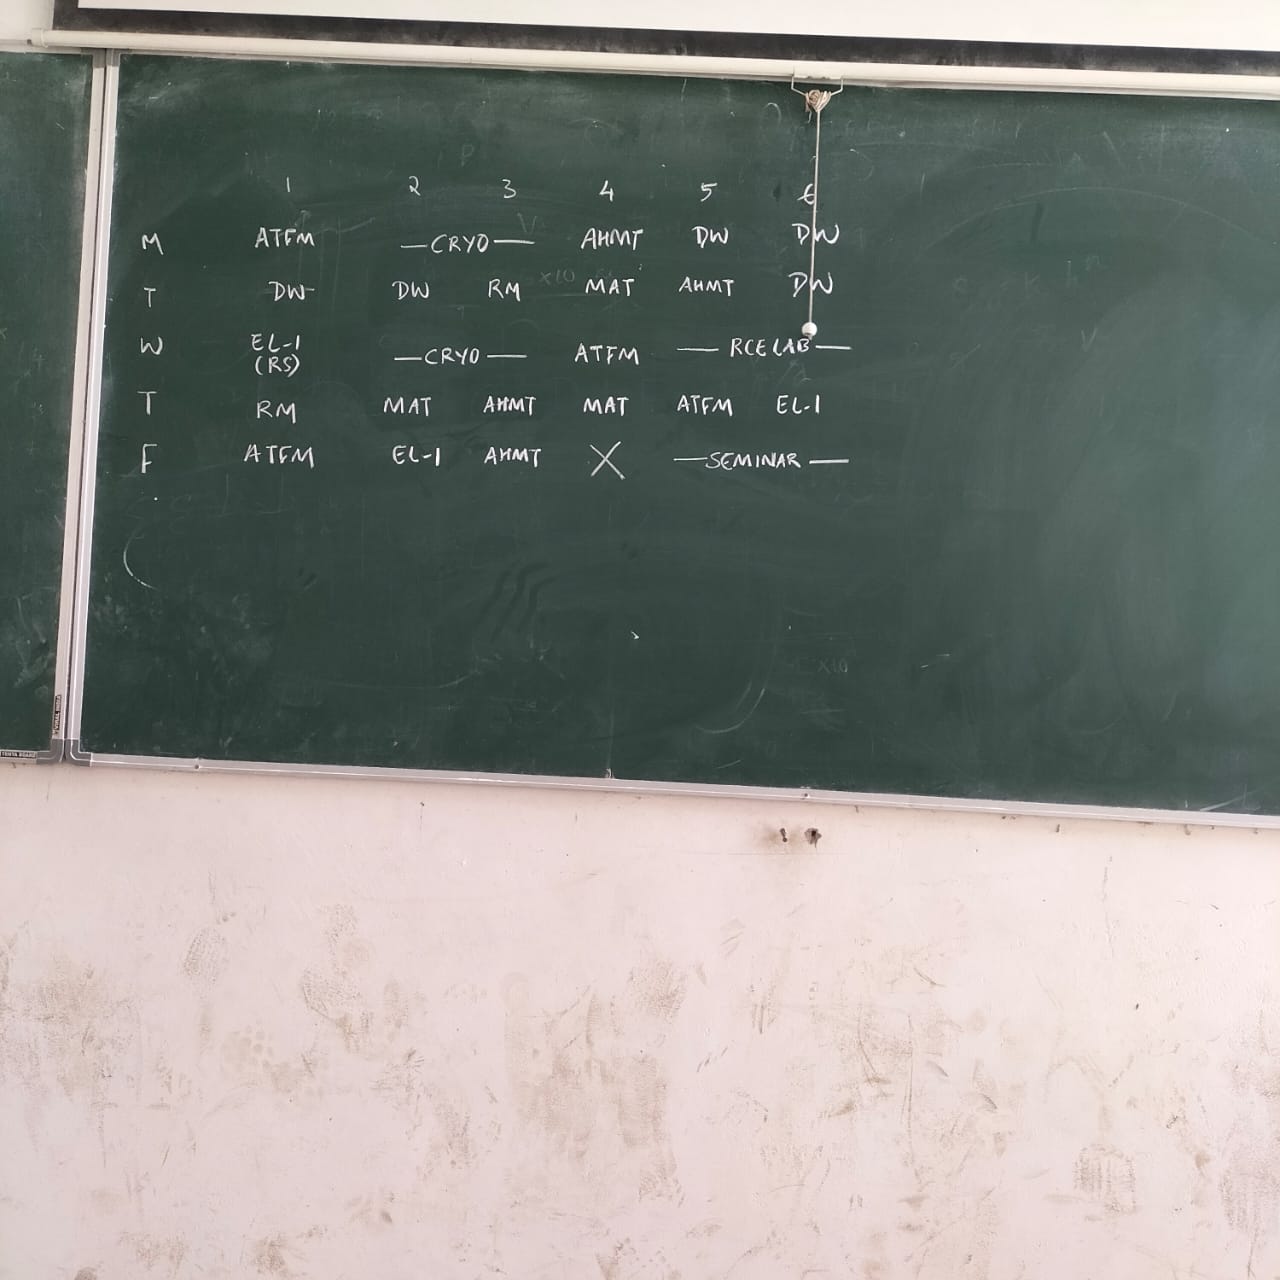 1 2 3 4 5 6
M ATFM —CRYO— AHMT DW DW
T DW DW RM MAT AHMT DW
W EL-1 (RS) —CRYO— ATFM — RCE LAB —
T RM MAT AHMT MAT ATFM EL-1
F ATFM EL-1 AHMT X —SEMINAR—